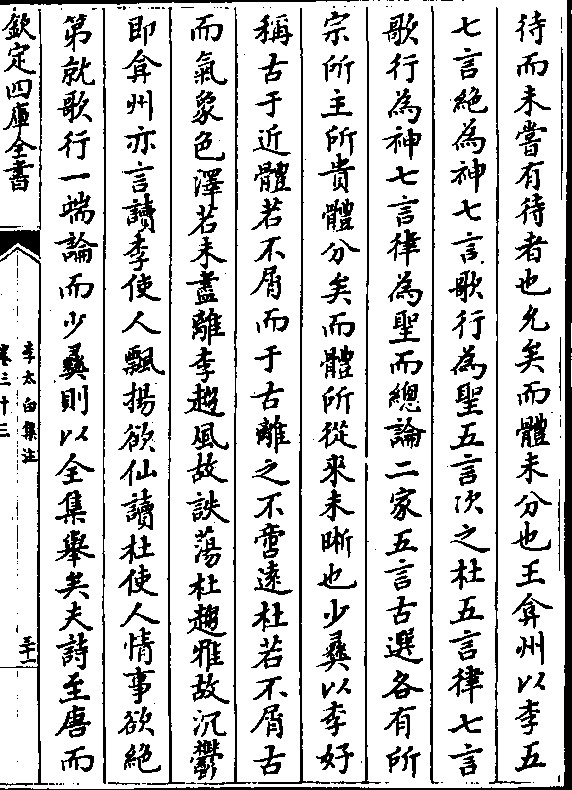 待而未嘗有待者也允矣而體未分也王弇州以李五
七言絶為神七言歌行為聖五言次之杜五言律七言
歌行為神七言律為聖而總論二家五言古選各有所
宗所主所貴體分矣而體所從來未晰也少彝以李好
稱古于近體若不屑而于古離之不啻遠杜若不屑古
而氣象色澤若未盡離李趨風故訣蕩杜趨雅故沉鬱
即弇州亦言讀李使人飄揚欲仙讀杜使人情事欲絶
第就歌行一端論而少彝則以全集舉矣夫詩至唐而
欽定四庫全書
李太白集注
卷三十三